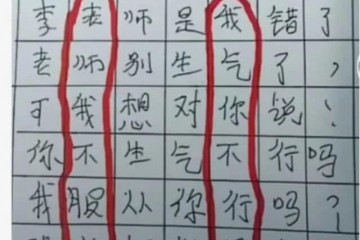 李老师是我错了
老师别生气了，
可我想对你说：
你不生气不行吗
我服从你行吗？